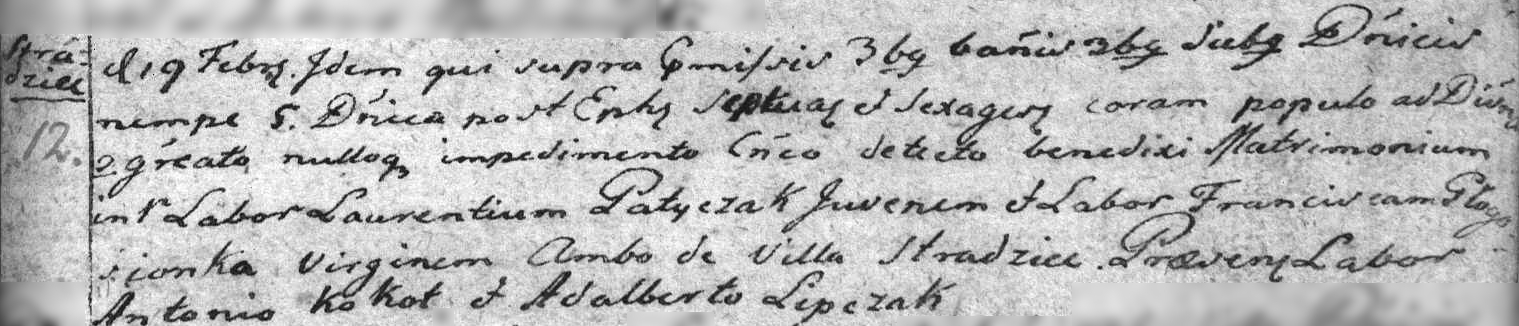 Stra-
dzice
12.
d 19 Febrų. Idem qui supra ꝑmissis 3bg bañis 3bg Subg Dñicis
nempe 5. Dñica post Ephį Septuaꝫ et Sexagesꝫ coram populo ad Divna
ↄgreato nulloqꝫ impedimento Cñco detecto benedixi Matrimonium
intr Labor Laurentium Patyczak Juvenem et Labor Franciscam Głogo
sionka Virginem Ambo de Villa Stradzice. Præsenꝫ Labor
Antonio Kokot et Adalberto Lepczak